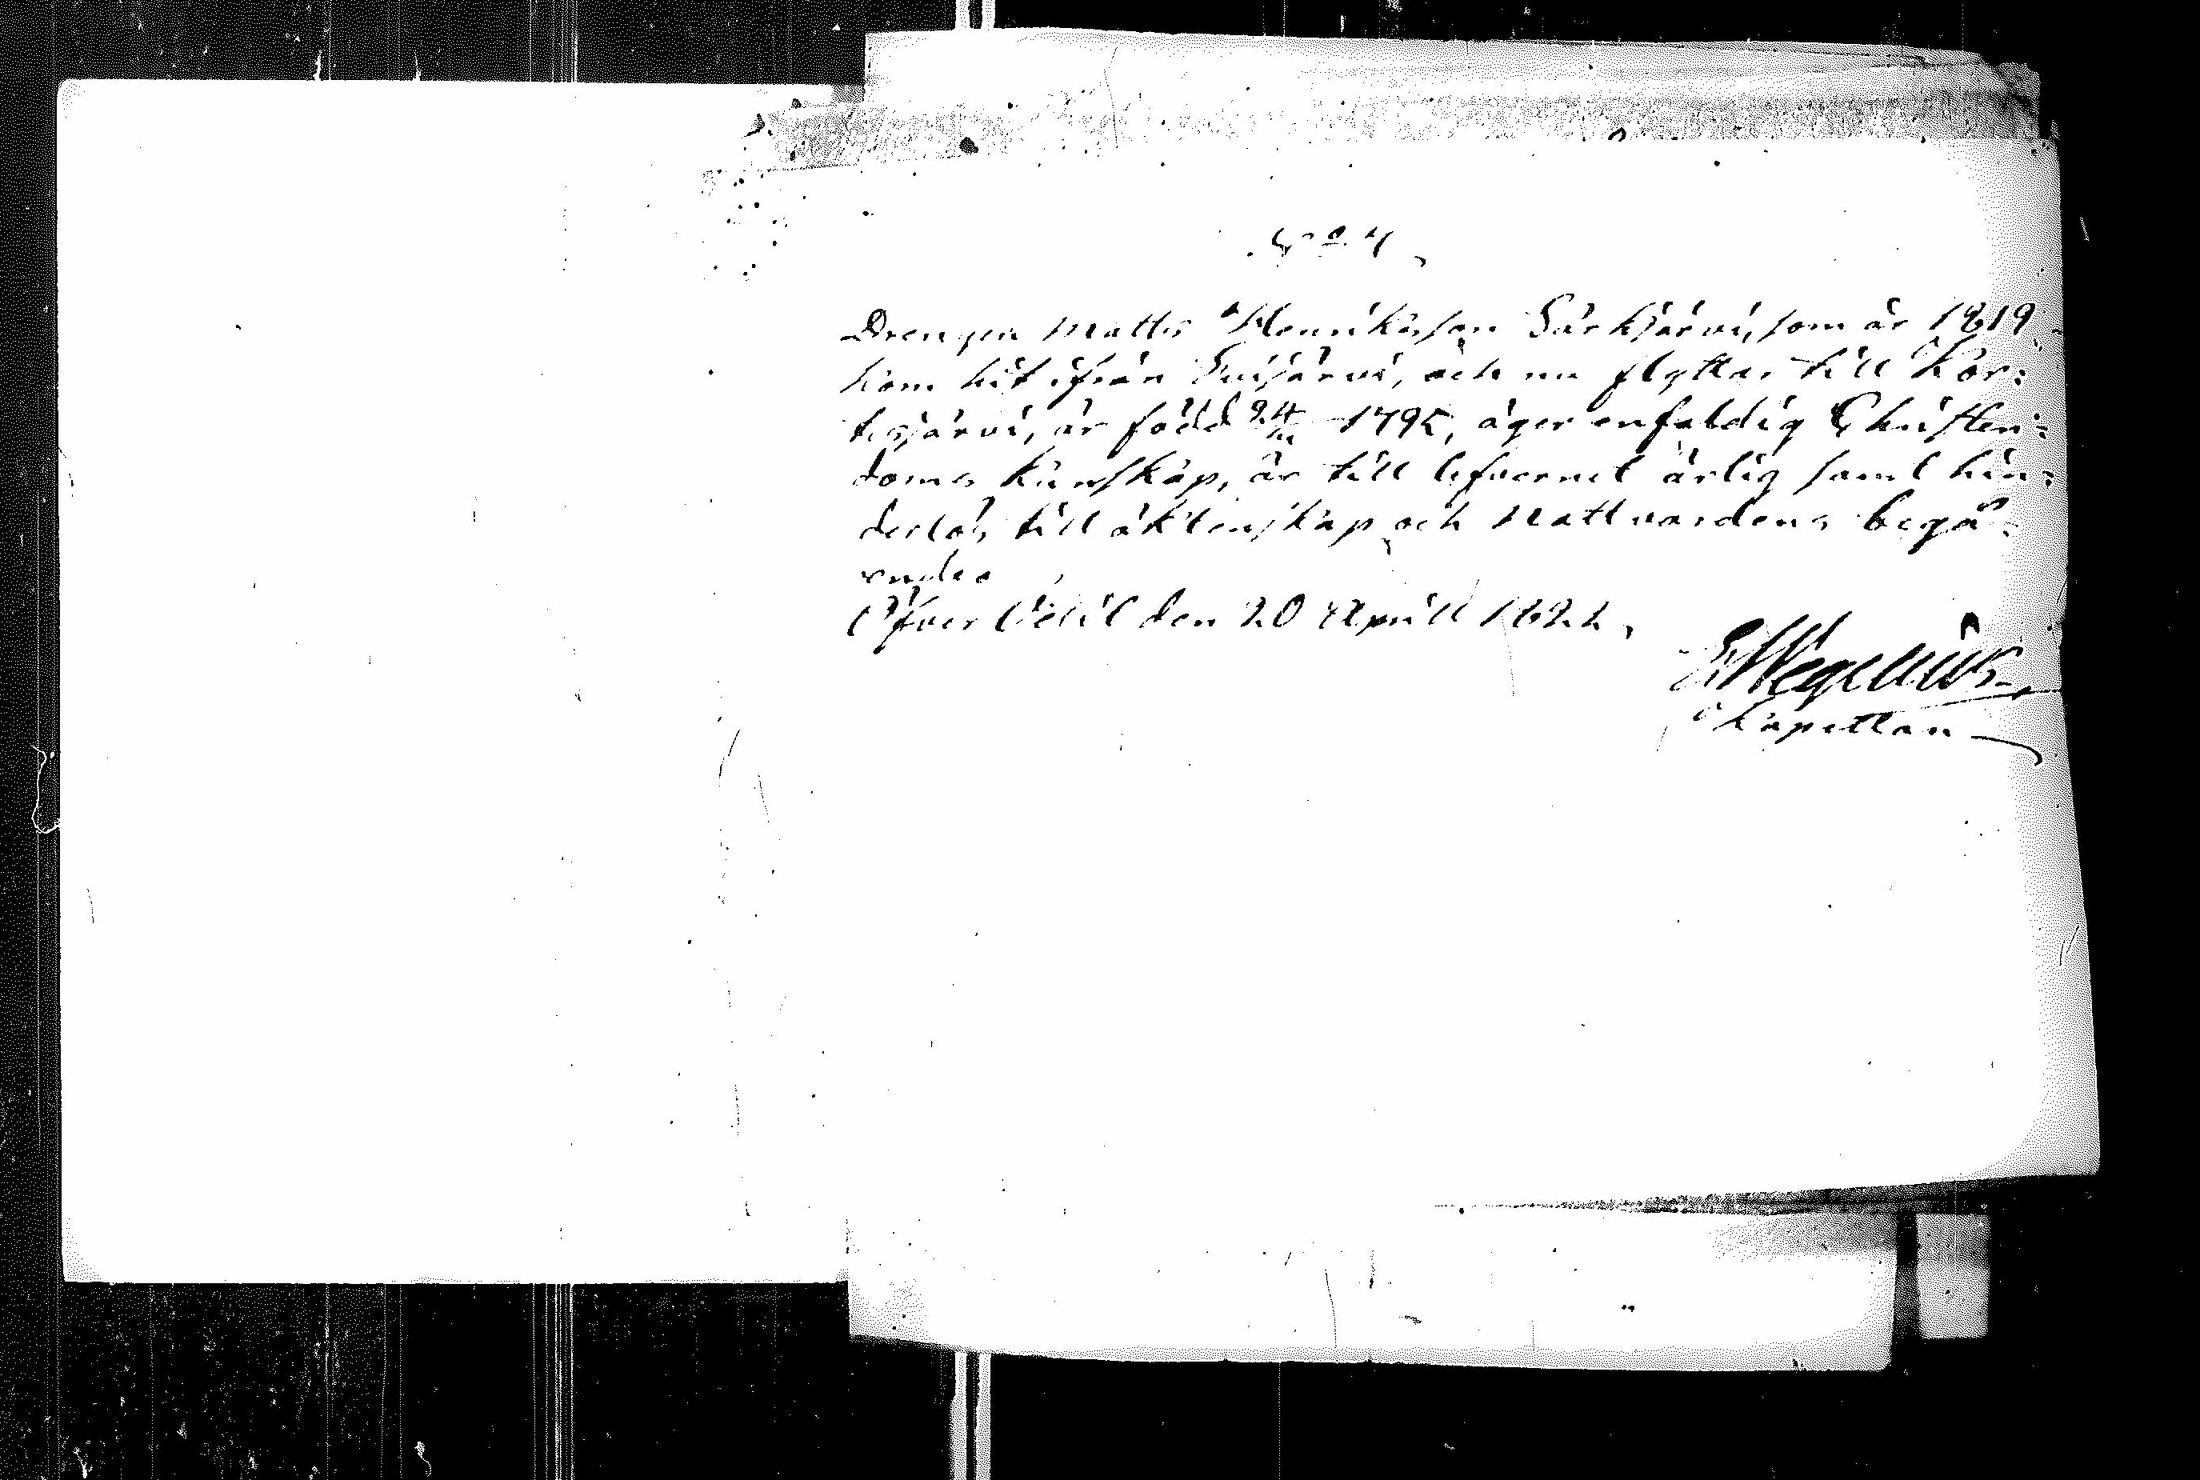 N:o 4,
Drengen Matts Henriksson Särkijärvi, som år 1819
kom hit ifrån Soijärvi, och nu flyttar till Kor-
tesjärvi, är född 24/ 1795, äger enfaldig Christen-
doms kunskap, är till lefvernet ärlig samt hin-
derlös till äktenskap och Nattvardens begå-
ende.
Öfver Vetil den 20 April 1822,
E Wegelius
Kapellan